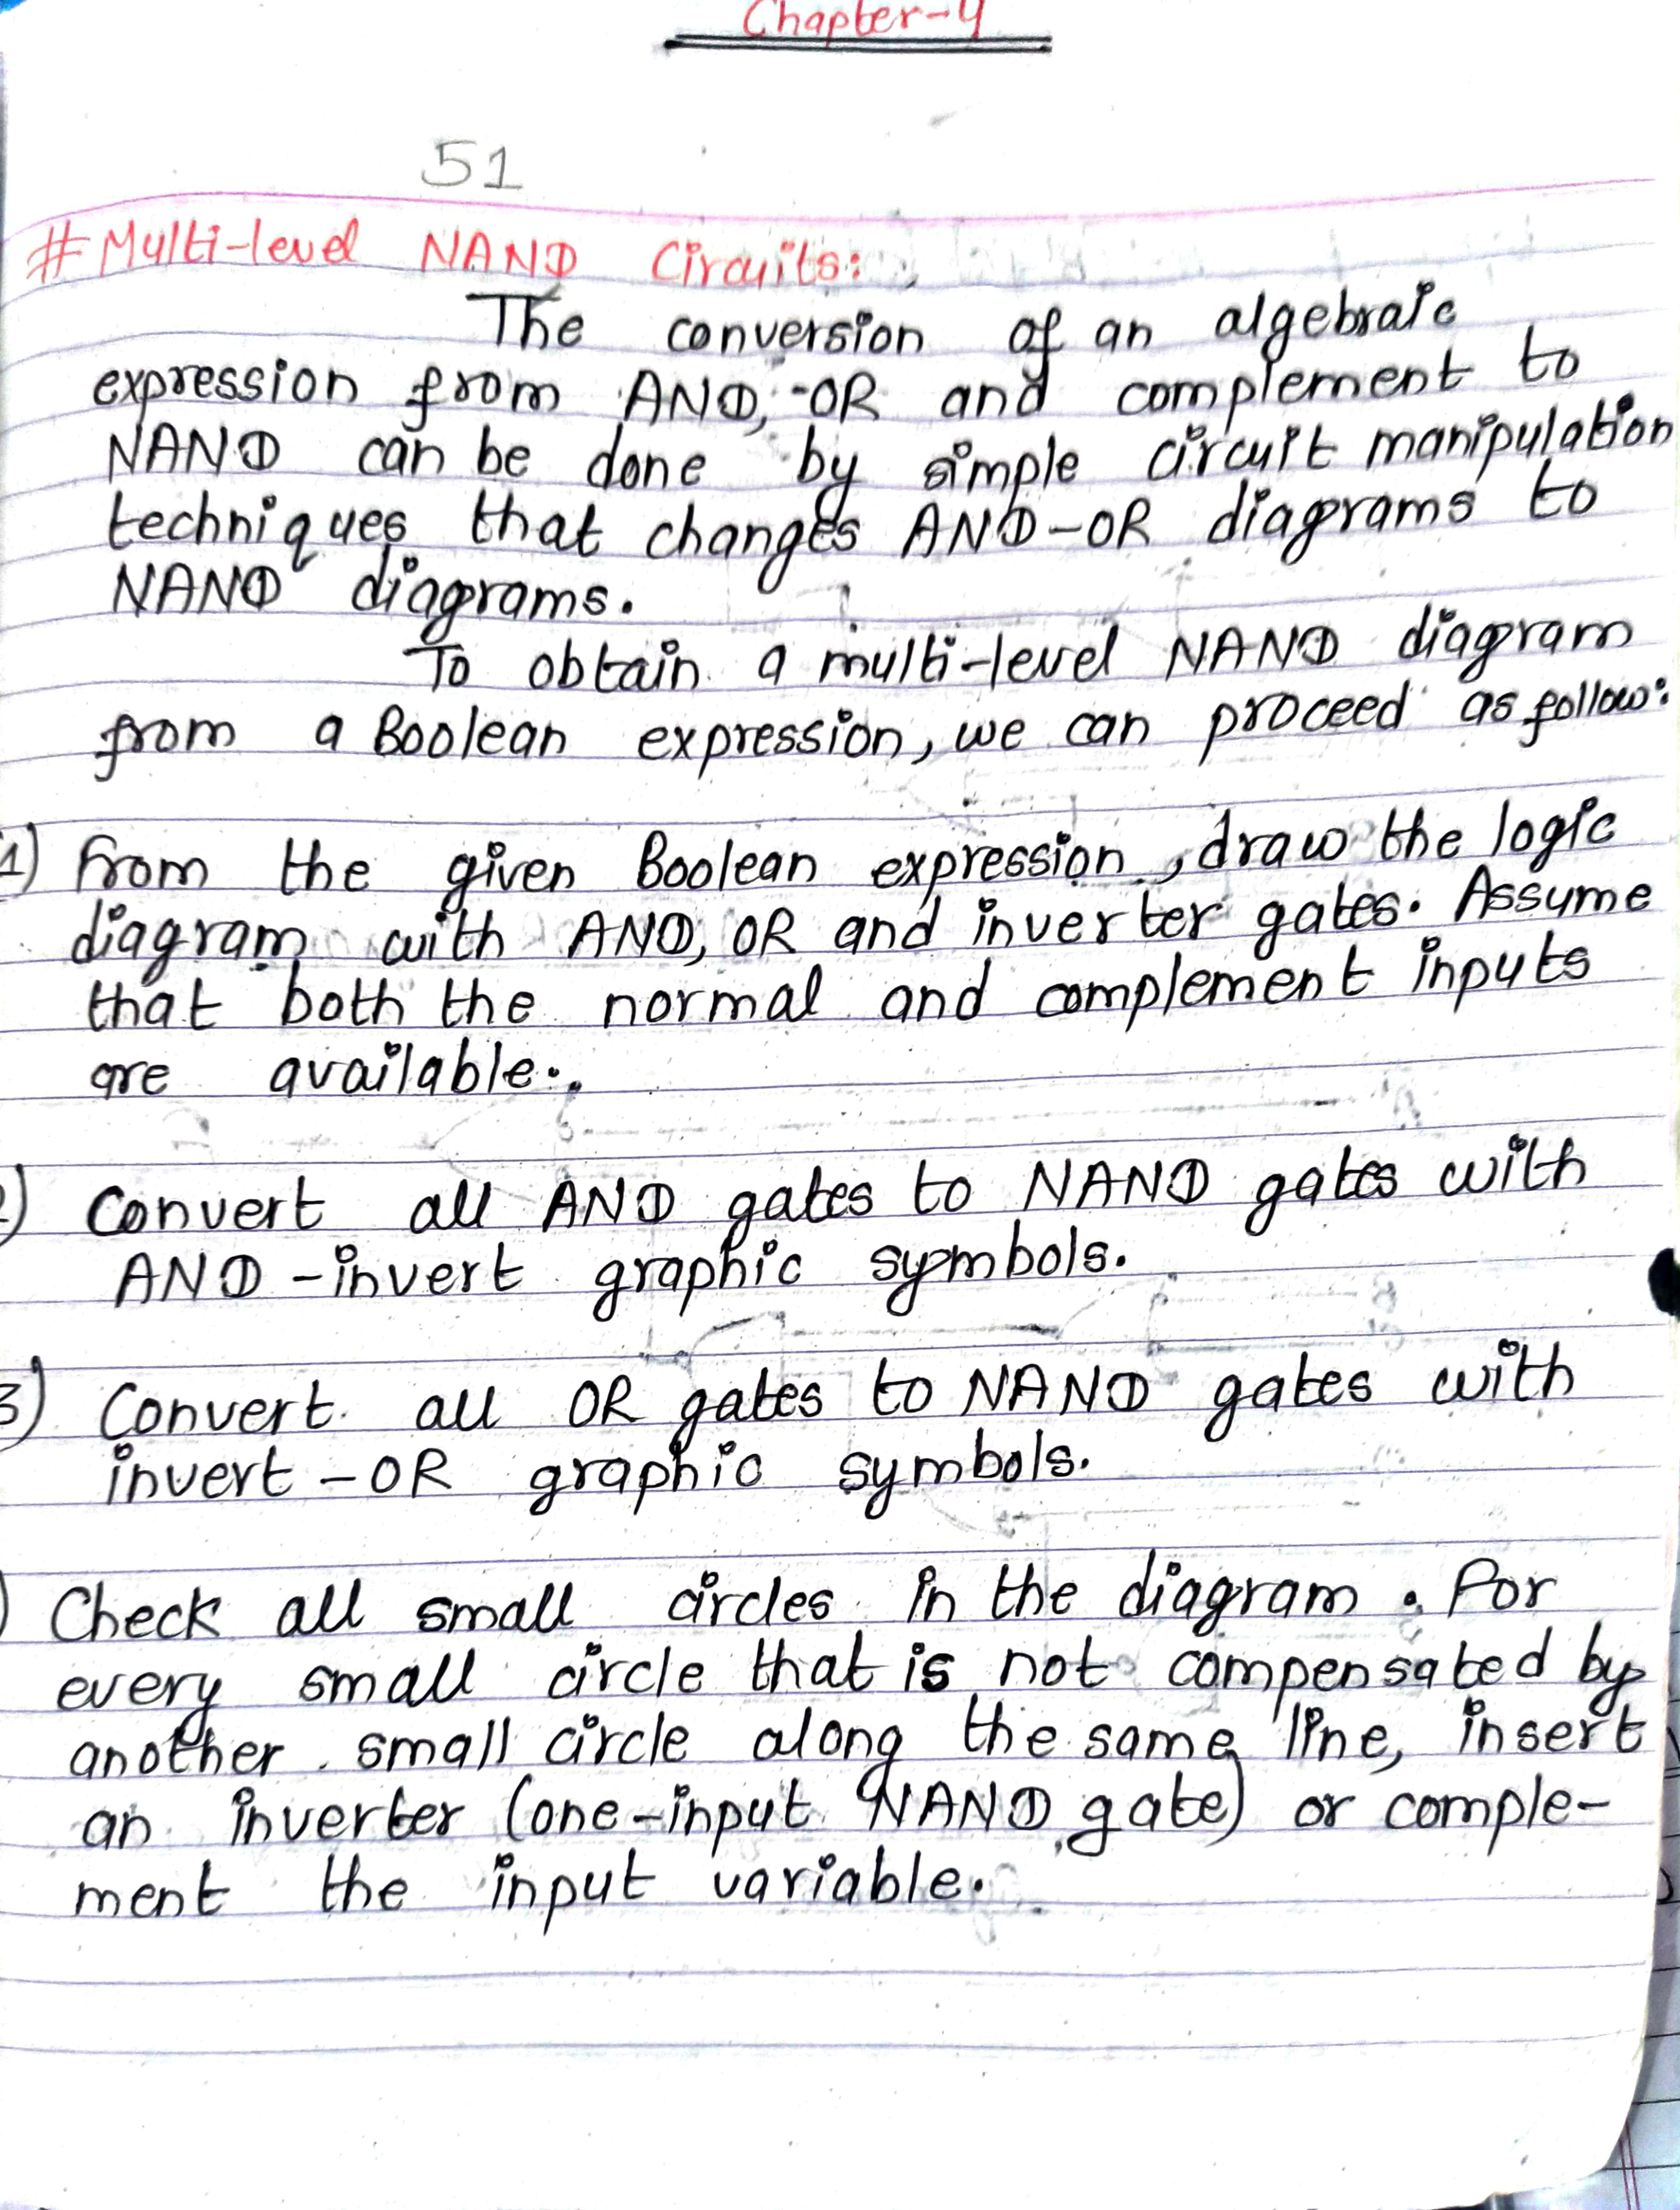 Chapter-4
51
# Multi-level NAND Circuits:
The conversion of an algebraic
expression from AND, -OR and complement to
NAND can be done by simple circuit manipulation
techniques that changes AND-OR diagrams to
NAND diagrams.
To obtain a multi-level NAND diagram
from a Boolean expression, we can proceed as follow:
1) From the given Boolean expression, draw the logic
diagram with AND, OR and inverter gates. Assume
that both the normal and complement inputs
are available.
) Convert all AND gates to NAND gates with
AND -invert graphic symbols.
3) Convert all OR gates to NAND gates with
invert -OR graphic symbols.
) Check all small circles in the diagram. For
every small circle that is not compensated by
another small circle along the same line, insert
an inverter (one-input NAND gate) or comple-
ment the input variable.